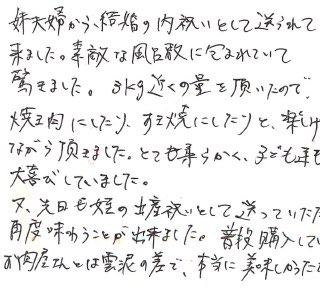 妹夫婦から、結婚の内祝いとして送られて
来ました。素敵な風呂敷に包まれていて
驚きました。3kg近くの量を頂いたので、
焼き肉にしたり、すき焼にしたりと、楽しみ
ながら頂きました。とても柔らかく、子ども達も
大喜びしていました。
又、先日も姪の出産祝いとして送っていただ
再度味わうことが出来ました。普段購入してい
お肉屋さんとは雲泥の差で、本当に美味しかったで